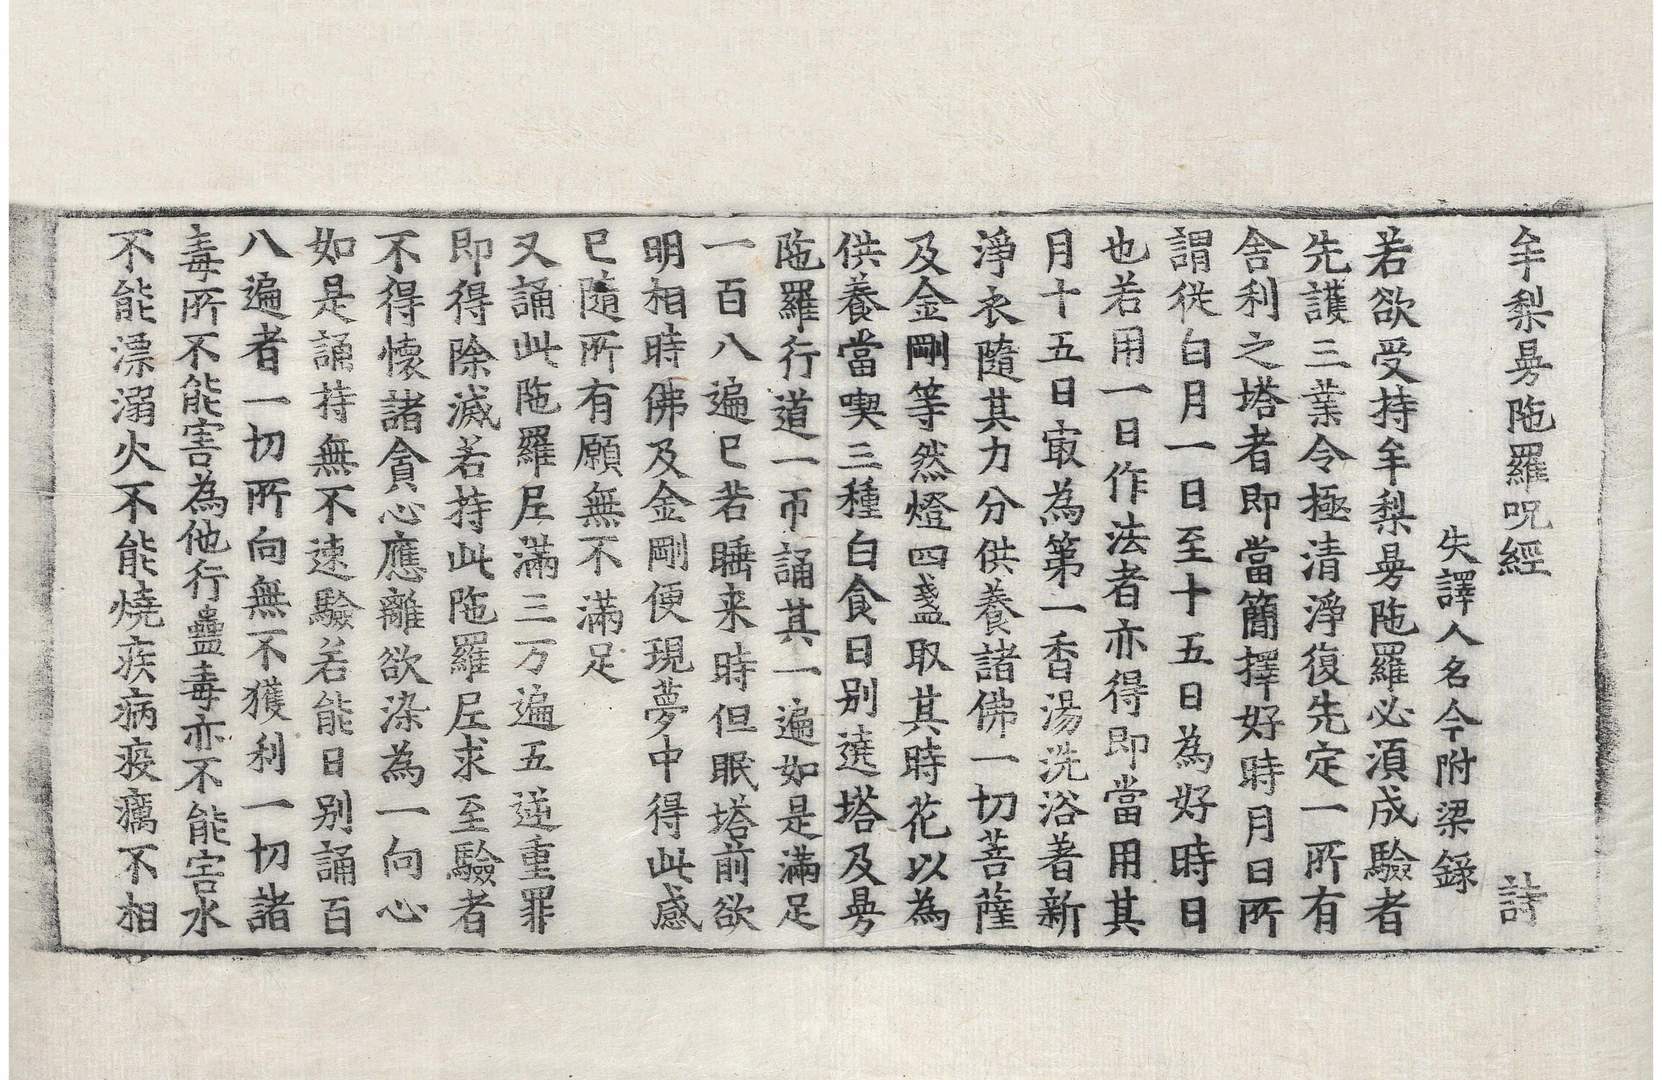 牟梨曼陁羅呪經 詩
失譯人名今附梁錄
若欲受持牟梨曼陁羅必湏成驗者
先護三業令極清淨復先定一所有
舎利之塔者即當簡擇好時月日所
謂從白月一日至十五日為好時日
也若用一日作法者亦得即當用其
月十五日㝡為第一香湯洗浴著新
淨衣隨其力分供養諸佛一切菩薩
及金剛等然燈四盞取其時花以為
供養當喫三種白食日别遶塔及曼
陁羅行道一帀誦其一遍如是滿足
一百八遍已若睡来時但眠塔前欲
明相時佛及金剛便現夢中得此感
已隨所有願無不滿足
又誦此陁羅尼滿三万遍五逆重罪
即得除滅若持此陁羅尼求至驗者
不得懷諸貪心應離欲染為一向心
如是誦持無不速驗若能日别誦百
八遍者一切所向無不獲利一切諸
毒所不能害為他行蠱毒亦不能害水
不能漂溺火不能燒疾病疫癘不相